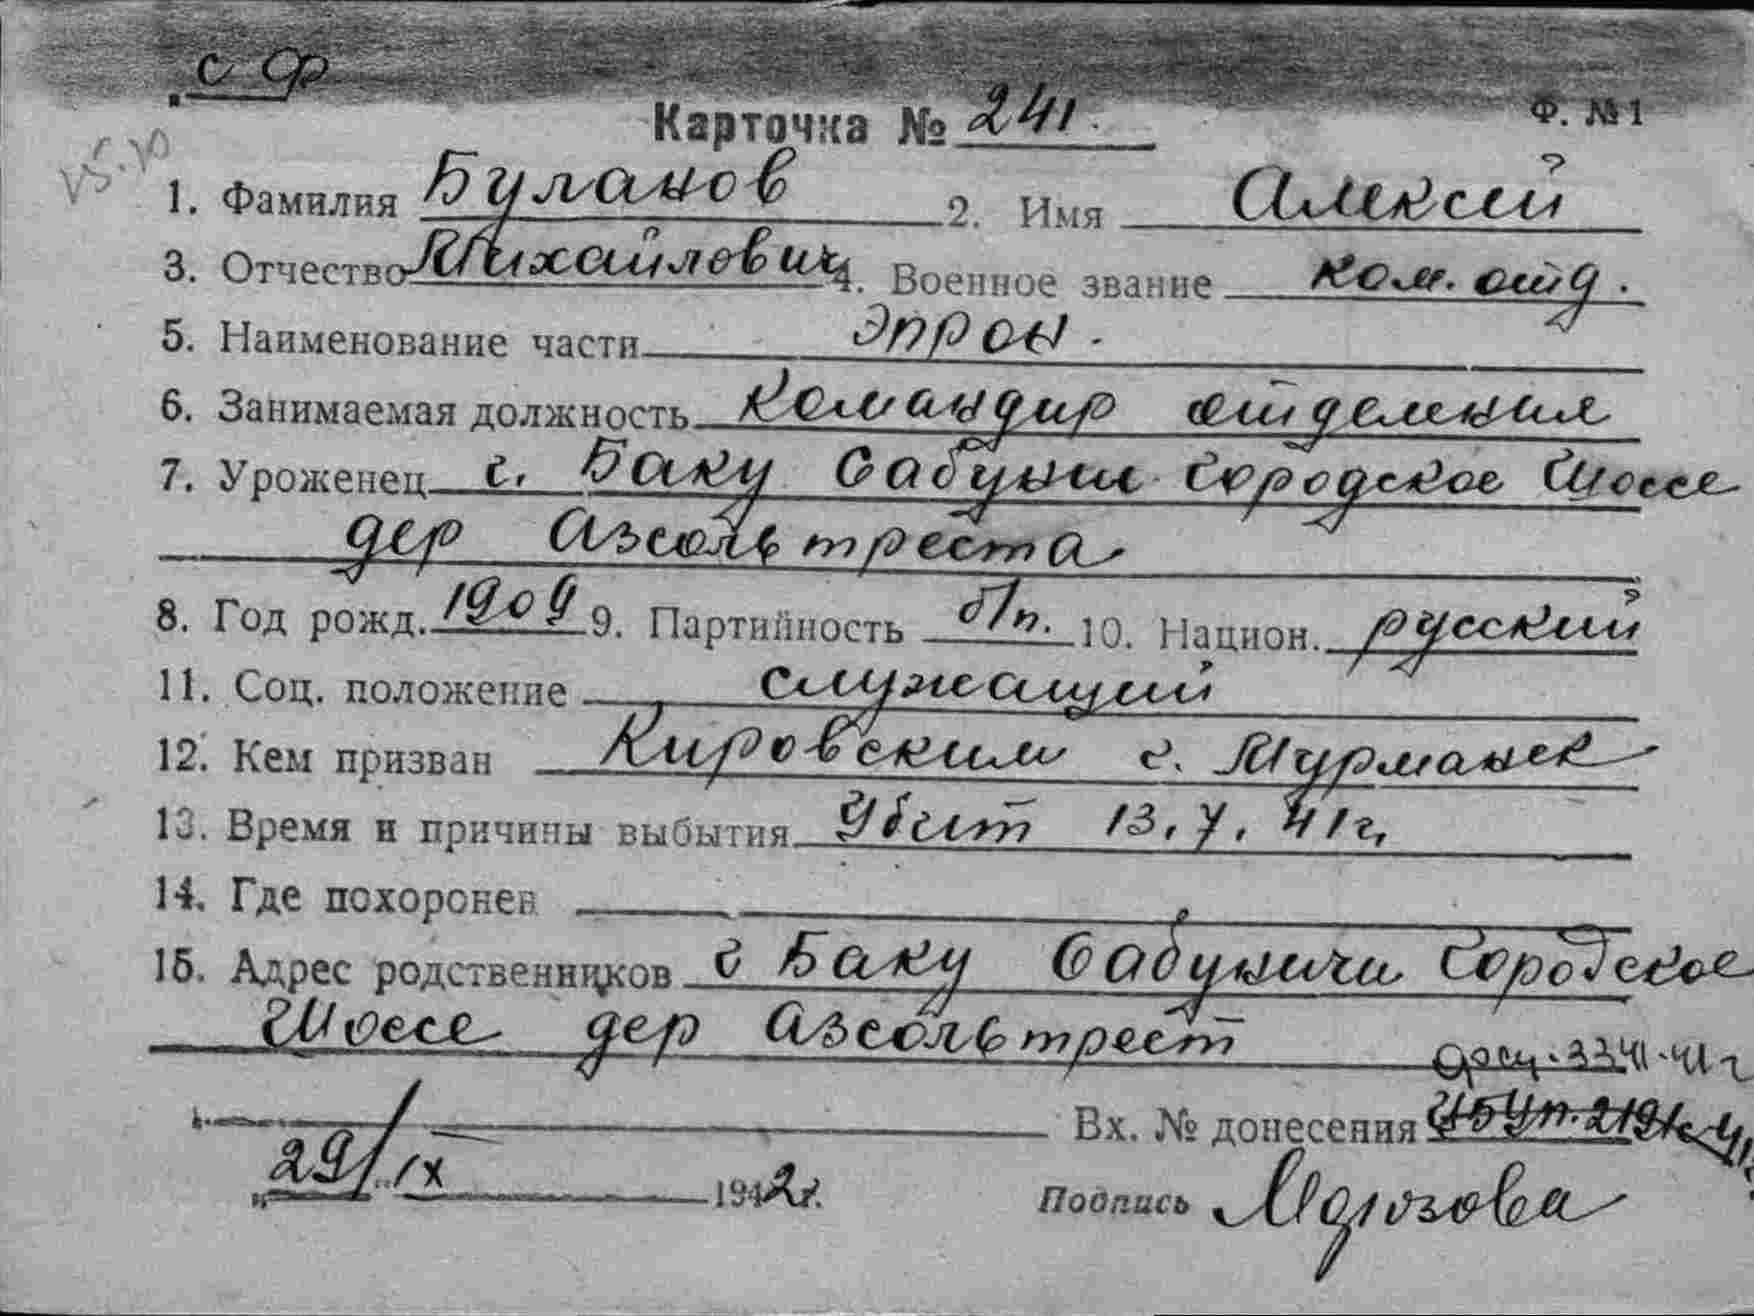 с Ф
Карточка № 241. Ф. №1
1. Фамилия Буланов 2. Имя Алексей
3. Отчество Михайлович 4. Военное звание ком. отд.
5. Наименование части ЭПРОН.
6. Занимаемая должность командир отделения
7. Уроженец г. Баку Сабунчи Городское Шоссе
дер Азсольтреста
8. Год рожд. 1909 9. Партийность б/п. 10. Национ. русский
11. Соц. положение служащий
12. Кем призван Кировским г. Мурманск
13. Время и причины выбытия Убит 13.7.41г.
14. Где похоронен
15. Адрес родственников г Баку Сабунчи Городское
Шоссе дер Азсольтрест
3341-41г
Вх. № донесения
"29/IX 1942г.
Подпись Морозова